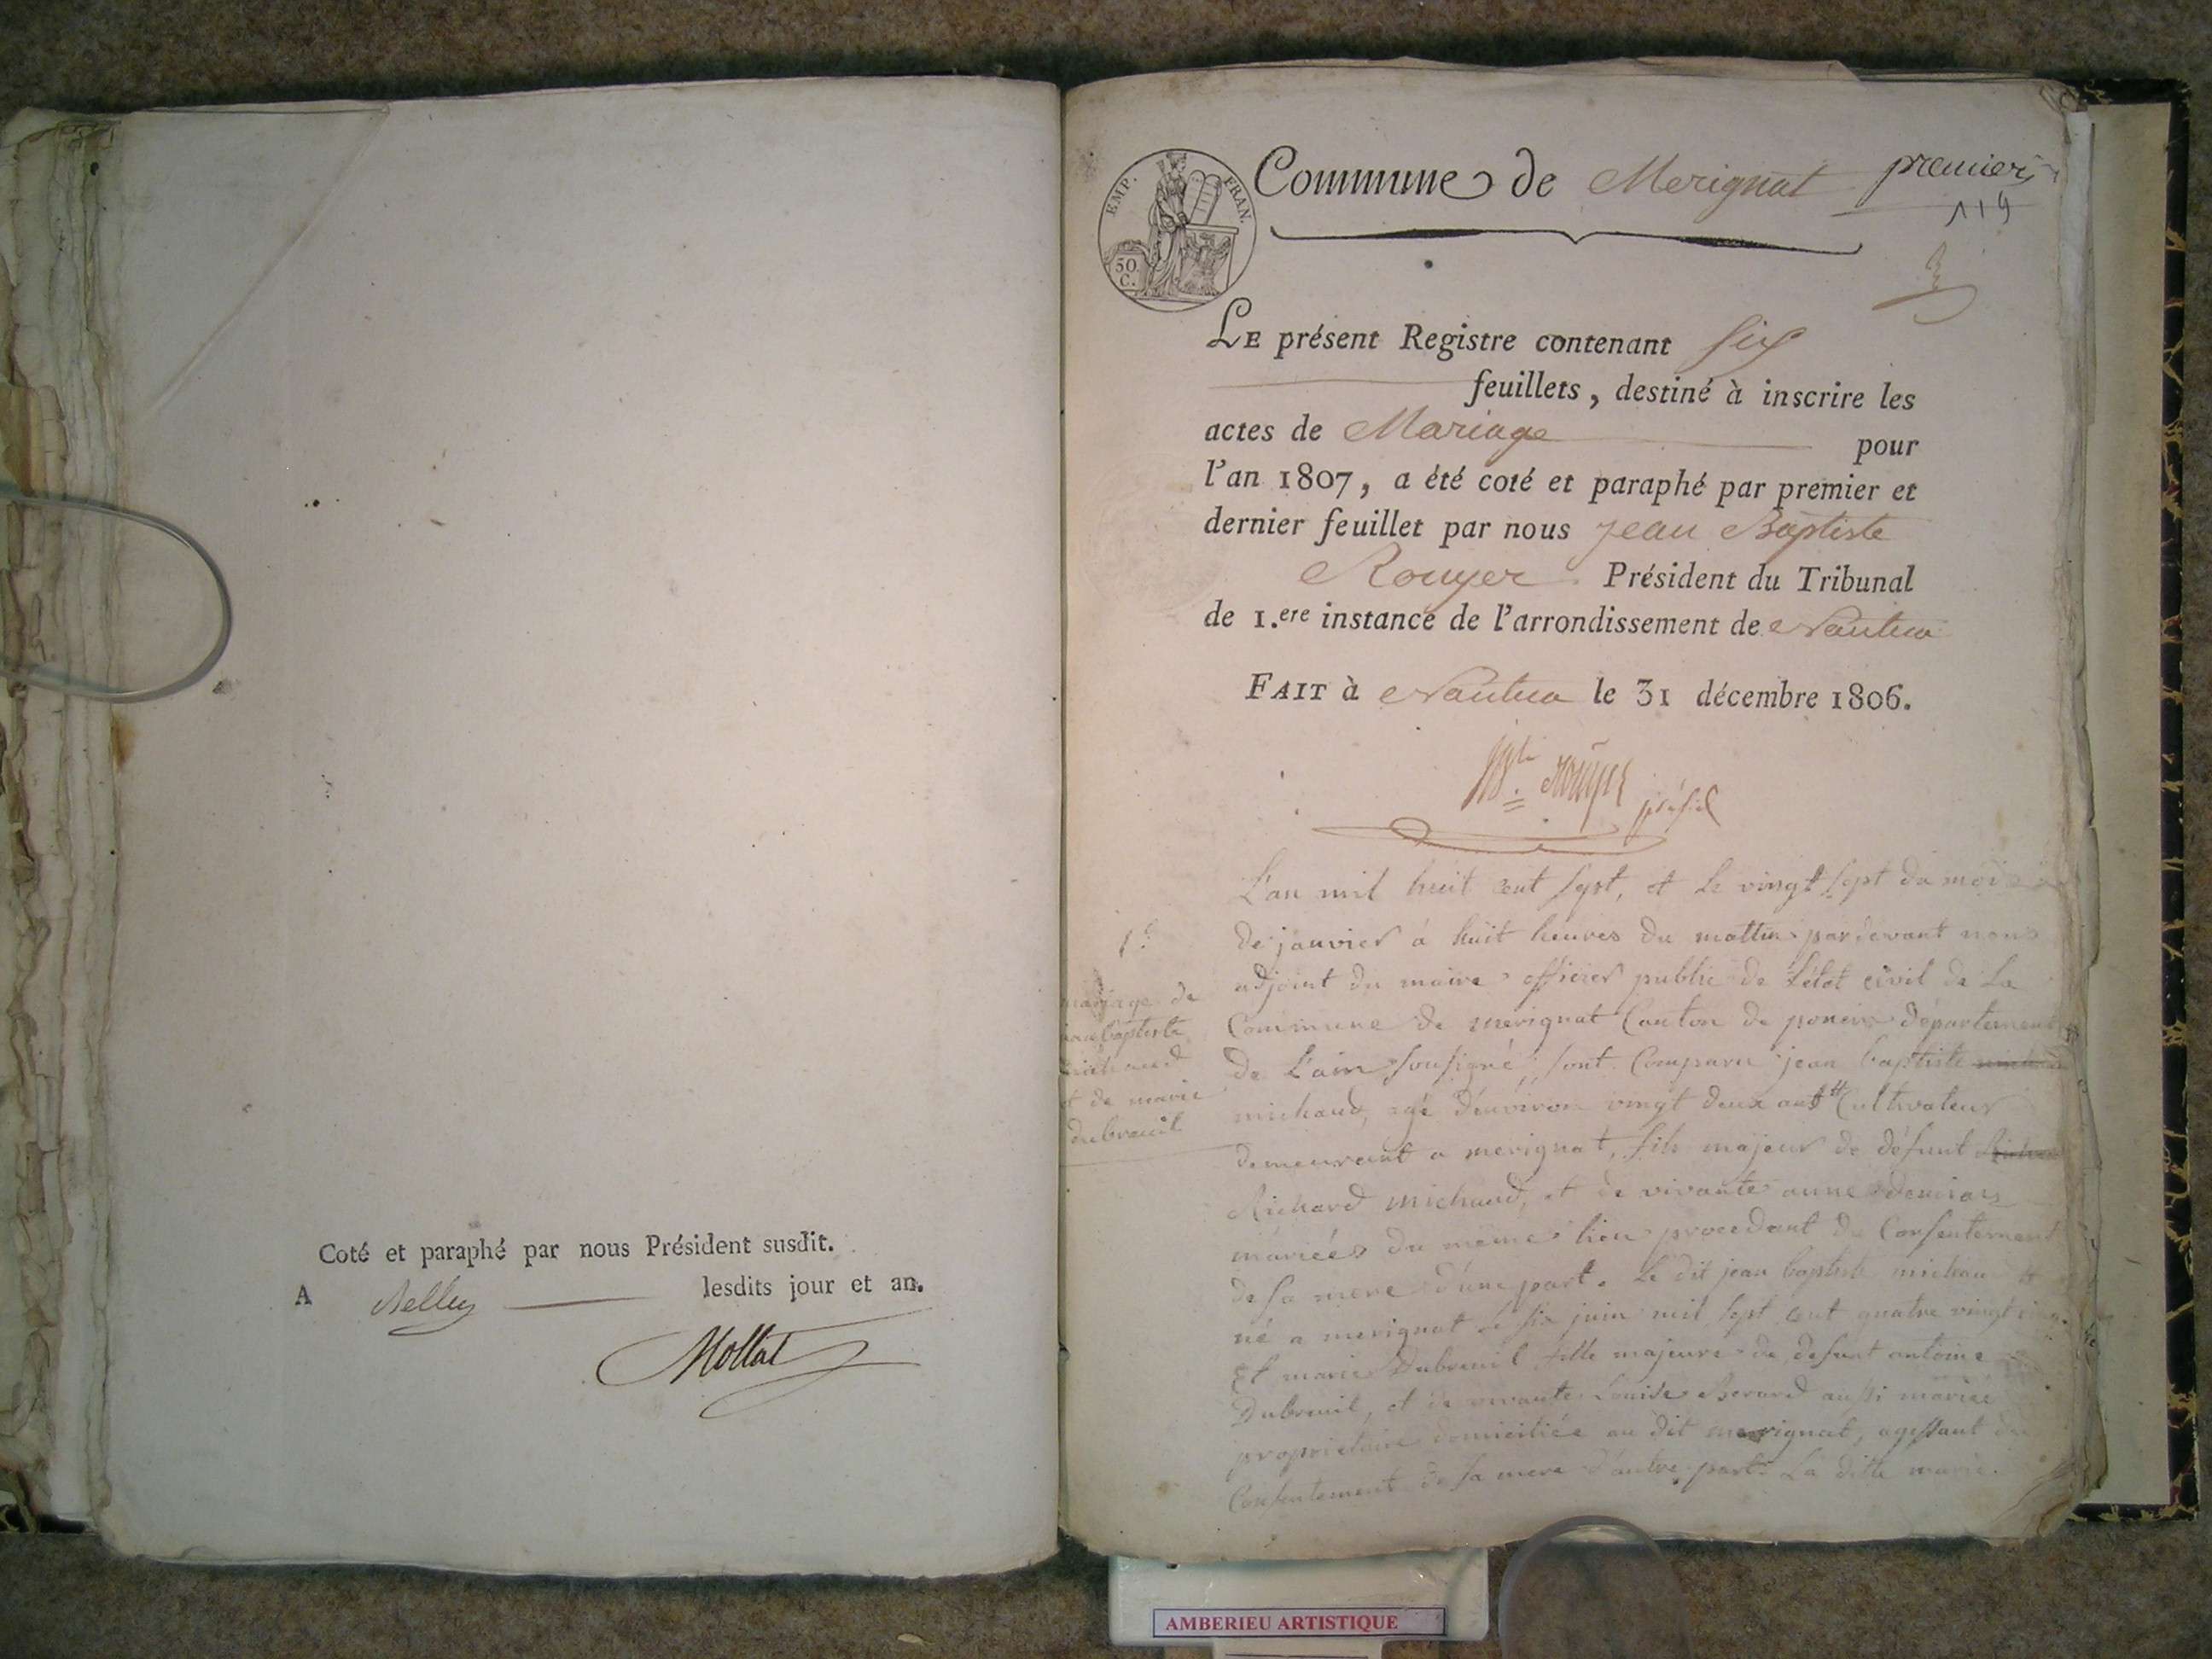 Coté et paraphé par nous Président susdit.
A Belley lesdits jour et an.
Mollat
EMP. FRAN.
50 C.
Commune de Merignat premier
119
LE présent Registre contenant six
feuillets, destiné à inscrire les
actes de Mariage pour
l'an 1807, a été coté et paraphé par premier et
dernier feuillet par nous Jean Baptiste
Rouyer Président du Tribunal
de 1.ere instance de l'arrondissement de Nantua
FAIT à Nantua le 31 décembre 1806.
Bte. Rouyer présid
1º
mariage de
jean baptiste
michaud
et de marie
dubreuil
L'an mil huit cent sept, et le vingt sept du mois
de janvier à huit heures du mattin pardevant nous
adjoint du maire officier public de l'état civil de La
Commune de merignat Canton de poncin département
de L'ain sousigné, sont Comparu jean baptiste
michaud, agé d'environ vingt deux ans Cultivateur
demeurant a merignat, fils majeur de défunt
Richard michaud, et de vivante anne
mariées du même lieu procedant du Consentement
de sa mere d'une part. Le dit jean baptiste michaud
né a merignat le six juin mil sept cent quatre vingt
Et marie Dubreuil fille majeure de defunt antoine
Dubreuil, et de vivante Louise Berard aussi mariée
propriétaire domiciliée au dit merignat, agissant du
Consentement de sa mere d'autre part. La ditte marie
AMBERIEU ARTISTIQUE